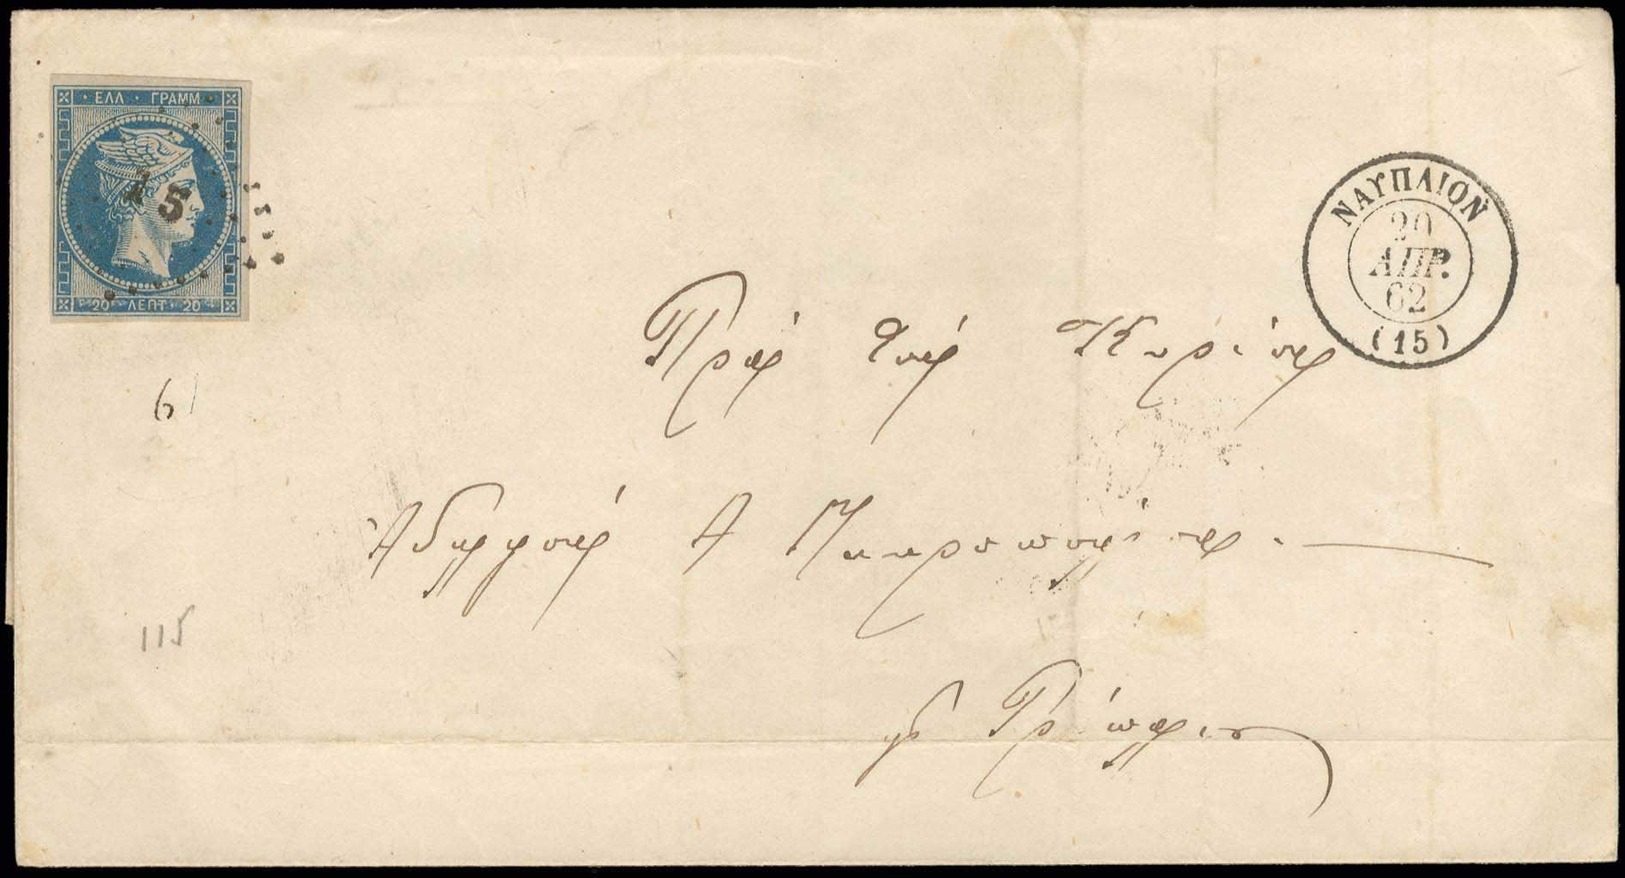 · ΕΛΛ · ΓΡΑΜΜ ·
15
20 ΛΕΠΤ · 20
ΝΑΥΠΛΙΟΝ
20
ΑΠΡ.
62
(15)
Πρὸς τοὺς Κυρίους
6
Ἀδελφοὺς Α
115
Τρίπολιν